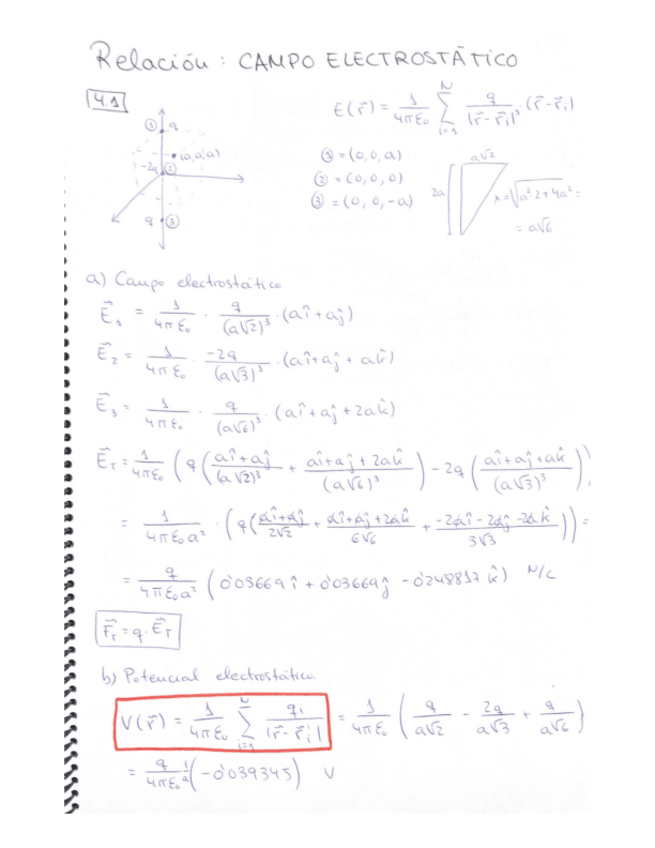 Relación: CAMPO ELECTROSTÁTICO
4.1
E(r⃗) = 1/(4πε₀) Σ_{i=1}^{N} q/|r⃗-r⃗ᵢ|³ · (r⃗-r⃗ᵢ)
① q
(a,a,a)
-2q ②
q ③
① = (0,0,a)
② = (0,0,0)
③ = (0,0,-a)
a√2
2a
x = √(a²·2+4a²) =
= a√6
a) Campo electrostático
E⃗₁ = 1/(4πε₀) · q/(a√2)³ · (aî+aĵ)
E⃗₂ = 1/(4πε₀) · -2q/(a√3)³ · (aî+aĵ+ak̂)
E⃗₃ = 1/(4πε₀) · q/(a√6)³ · (aî+aĵ+2ak̂)
E⃗_T = 1/(4πε₀) (q((aî+aĵ)/(a√2)³ + (aî+aĵ+2ak̂)/(a√6)³) - 2q((aî+aĵ+ak̂)/(a√3)³))
= 1/(4πε₀a²) · (q((aî+aĵ)/2√2 + (aî+aĵ+2ak̂)/6√6 + (-2aî-2aĵ-2ak̂)/3√3)) =
= q/(4πε₀a²) (0'03669î + 0'03669ĵ - 0'248817k̂) N/C
F⃗_T = q·E⃗_T
b) Potencial electrostático
V(r⃗) = 1/(4πε₀) Σ_{i=1}^{N} qᵢ/|r⃗-r⃗ᵢ| = 1/(4πε₀) (q/a√2 - 2q/a√3 + q/a√6)
= q/(4πε₀) 1/a (-0'039345) V